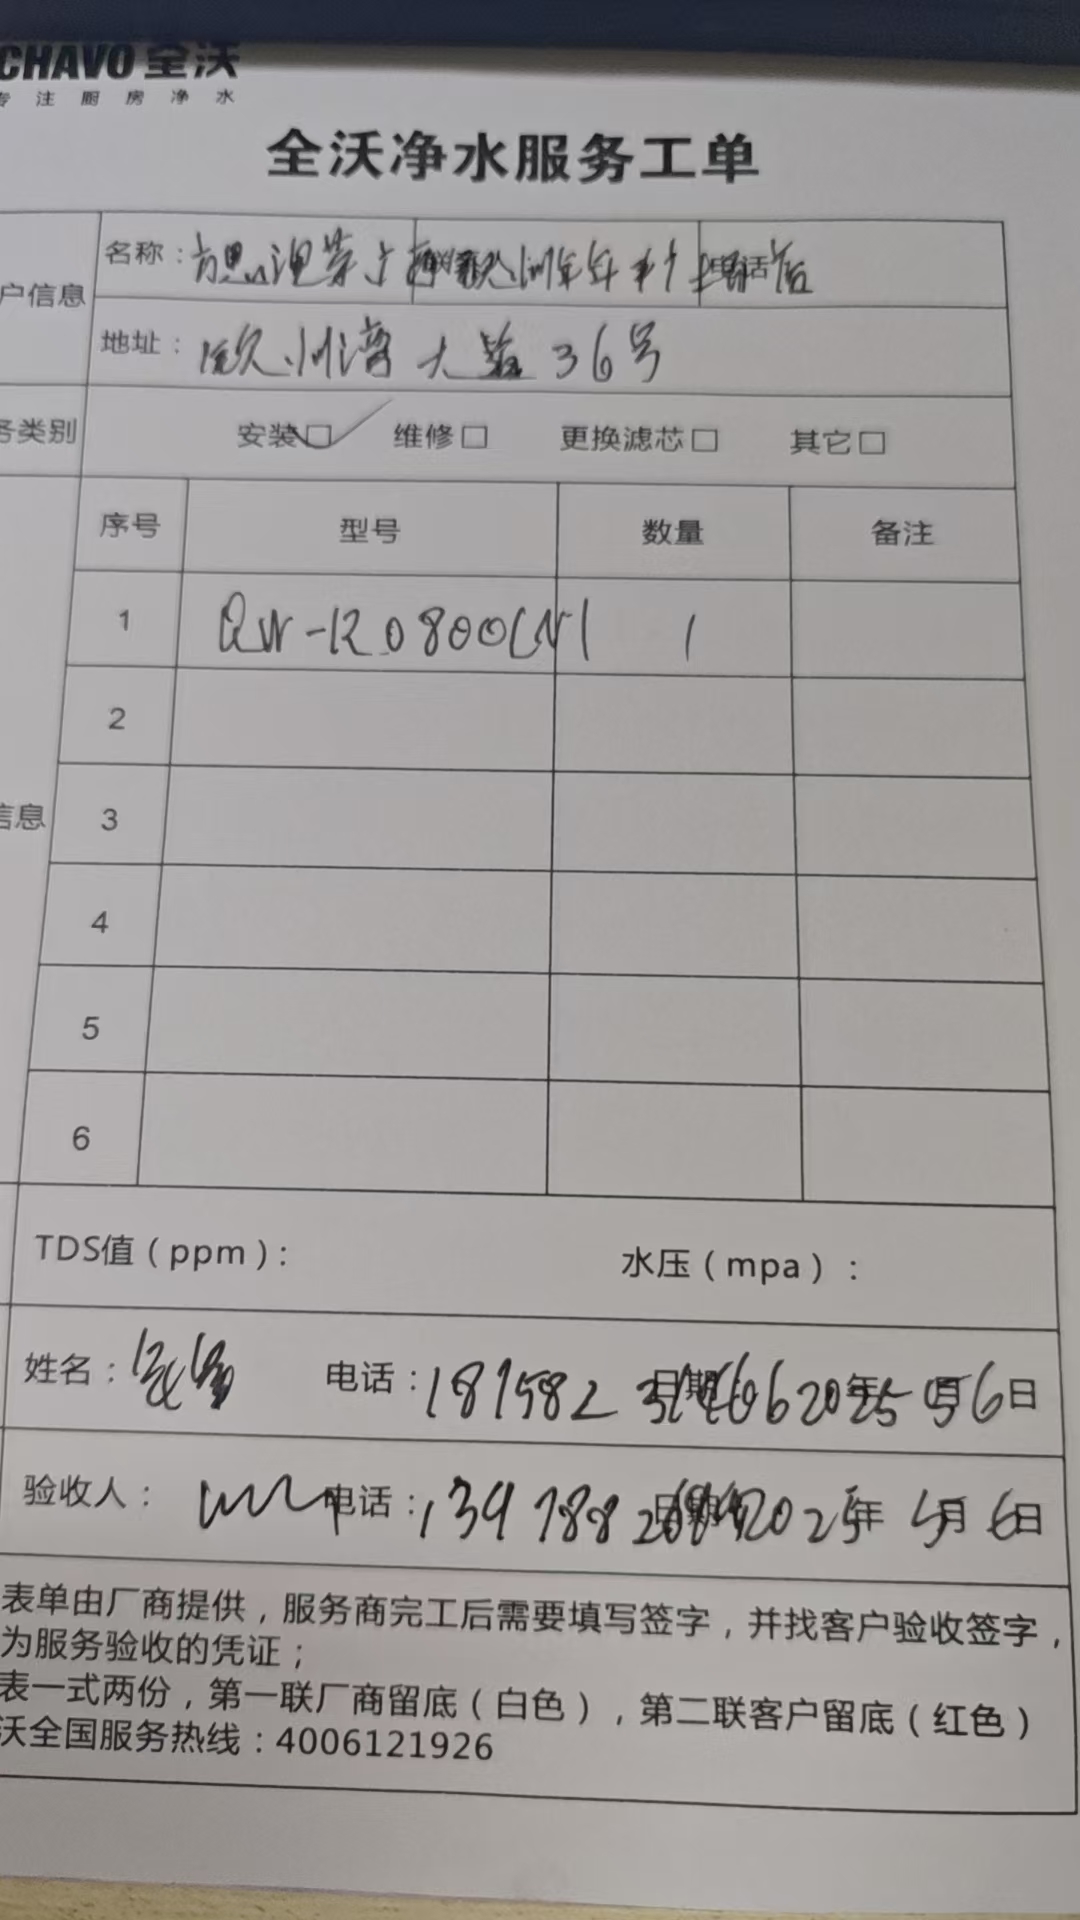 CHAVO 全沃
专注厨房净水
全沃净水服务工单
户信息
名称：
电话
地址：欧洲湾大道36号
务类别
安装□ 维修□ 更换滤芯□ 其它□
序号 型号 数量 备注
1 QW-R0800CN1 1
2
信息
3
4
5
6
TDS值（ppm）: 水压（mpa）:
姓名： 电话：181582 日期 2025年5月6日
验收人： 电话：139788 日期 2025年5月6日
表单由厂商提供，服务商完工后需要填写签字，并找客户验收签字，
为服务验收的凭证；
表一式两份，第一联厂商留底（白色），第二联客户留底（红色）
沃全国服务热线：4006121926